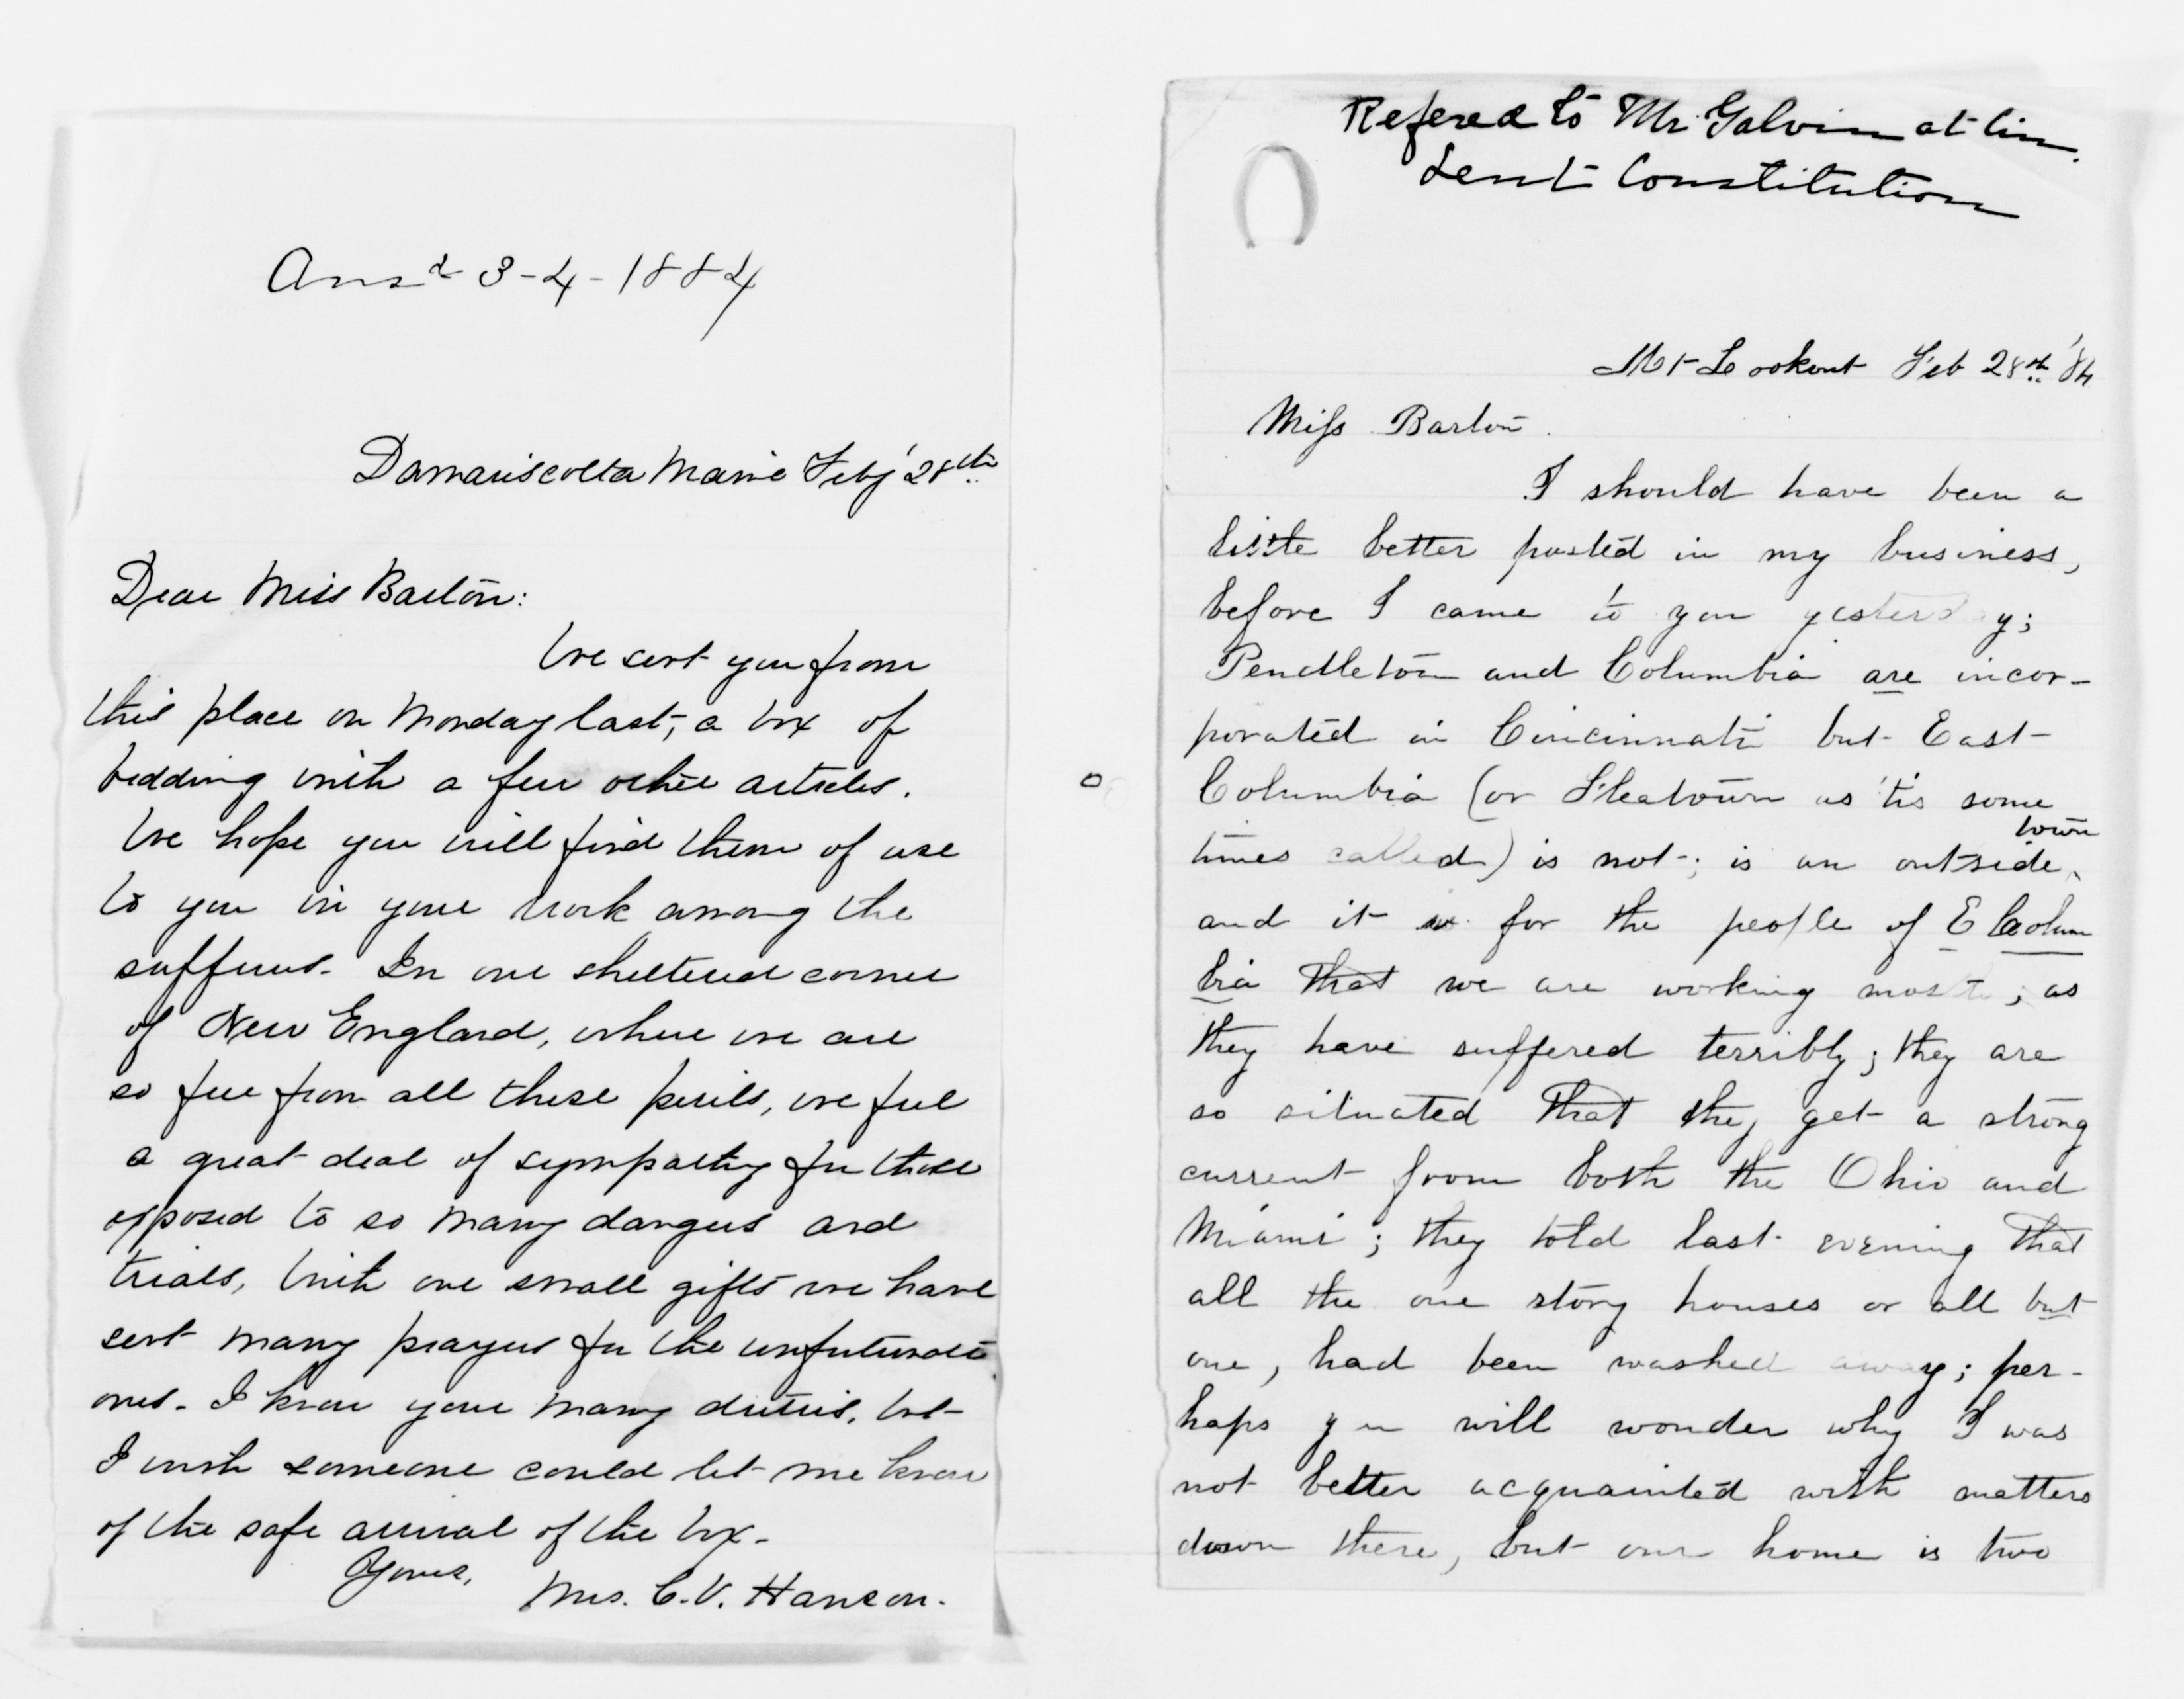 Ansd 3-4-1884
Damariscotta Maine Feby 28th
Dear Miss Barton:
We sent you from
this place on Monday last, a box of
bedding with a few other articles.
We hope you will find them of use
to you in your work among the
sufferers. In our sheltered corner
of New England, where we are
so free from all these perils, we feel
a great deal of sympathy for those
exposed to so many dangers and
trials, With our small gifts we have
sent many prayers for the unfortunate
ones. I know your many duties, but
I wish someone could let me know
of the safe arrival of the box.
Yours,
Mrs. C. V. Hanson.
Refered to Mr. Galvin at Cin.
Sent Constitution
Mt Lookout Feb 28th '84
Miss Barton.
I should have been a
little better posted in my business,
before I came to you yesterday;
Pendleton and Columbia are incor-
porated in Cincinnati but East
Columbia (or Fleatown as 'tis some
times called) is not; is an outside town
and it is for the people of E Colum
bia that we are working mostly; as
they have suffered terribly; they are
so situated that they get a strong
current from both the Ohio and
Miami; they told last evening that
all the one story houses or all but
one, had been washed away; per-
haps you will wonder why I was
not better acquainted with matters
down there, but our home is two